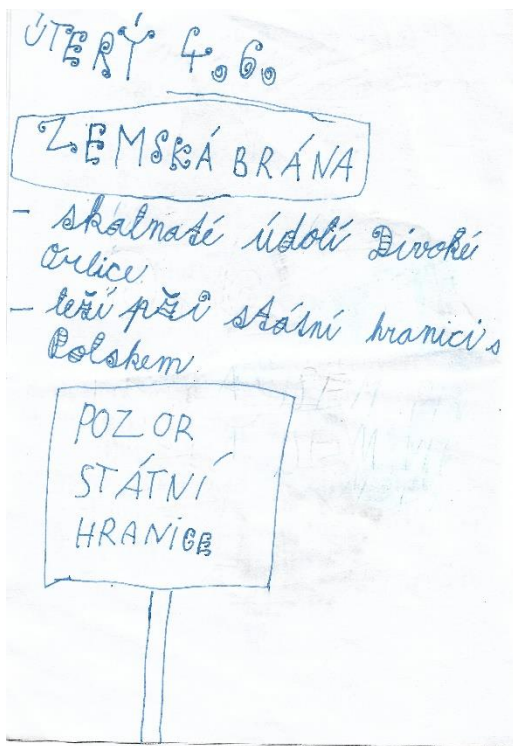 ÚTERÝ 4.6.
ZEMSKÁ BRÁNA
- skalnaté údolí Divoké
Orlice
- leží při státní hranici s
Polskem
POZOR
STÁTNÍ
HRANICE